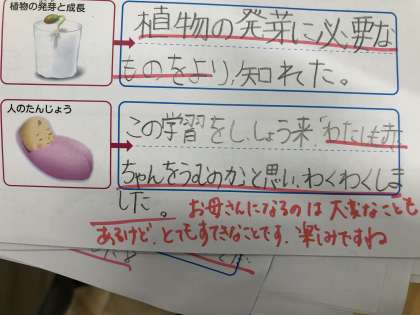 植物の発芽と成長
植物の発芽に必要な
ものをより、知れた。
人のたんじょう
この学習をし、しょう来、「わたしも赤
ちゃんをうむのか」と思い、わくわくしま
した。
お母さんになるのは大変なことも
あるけど、とてもすてきなことです。楽しみですね